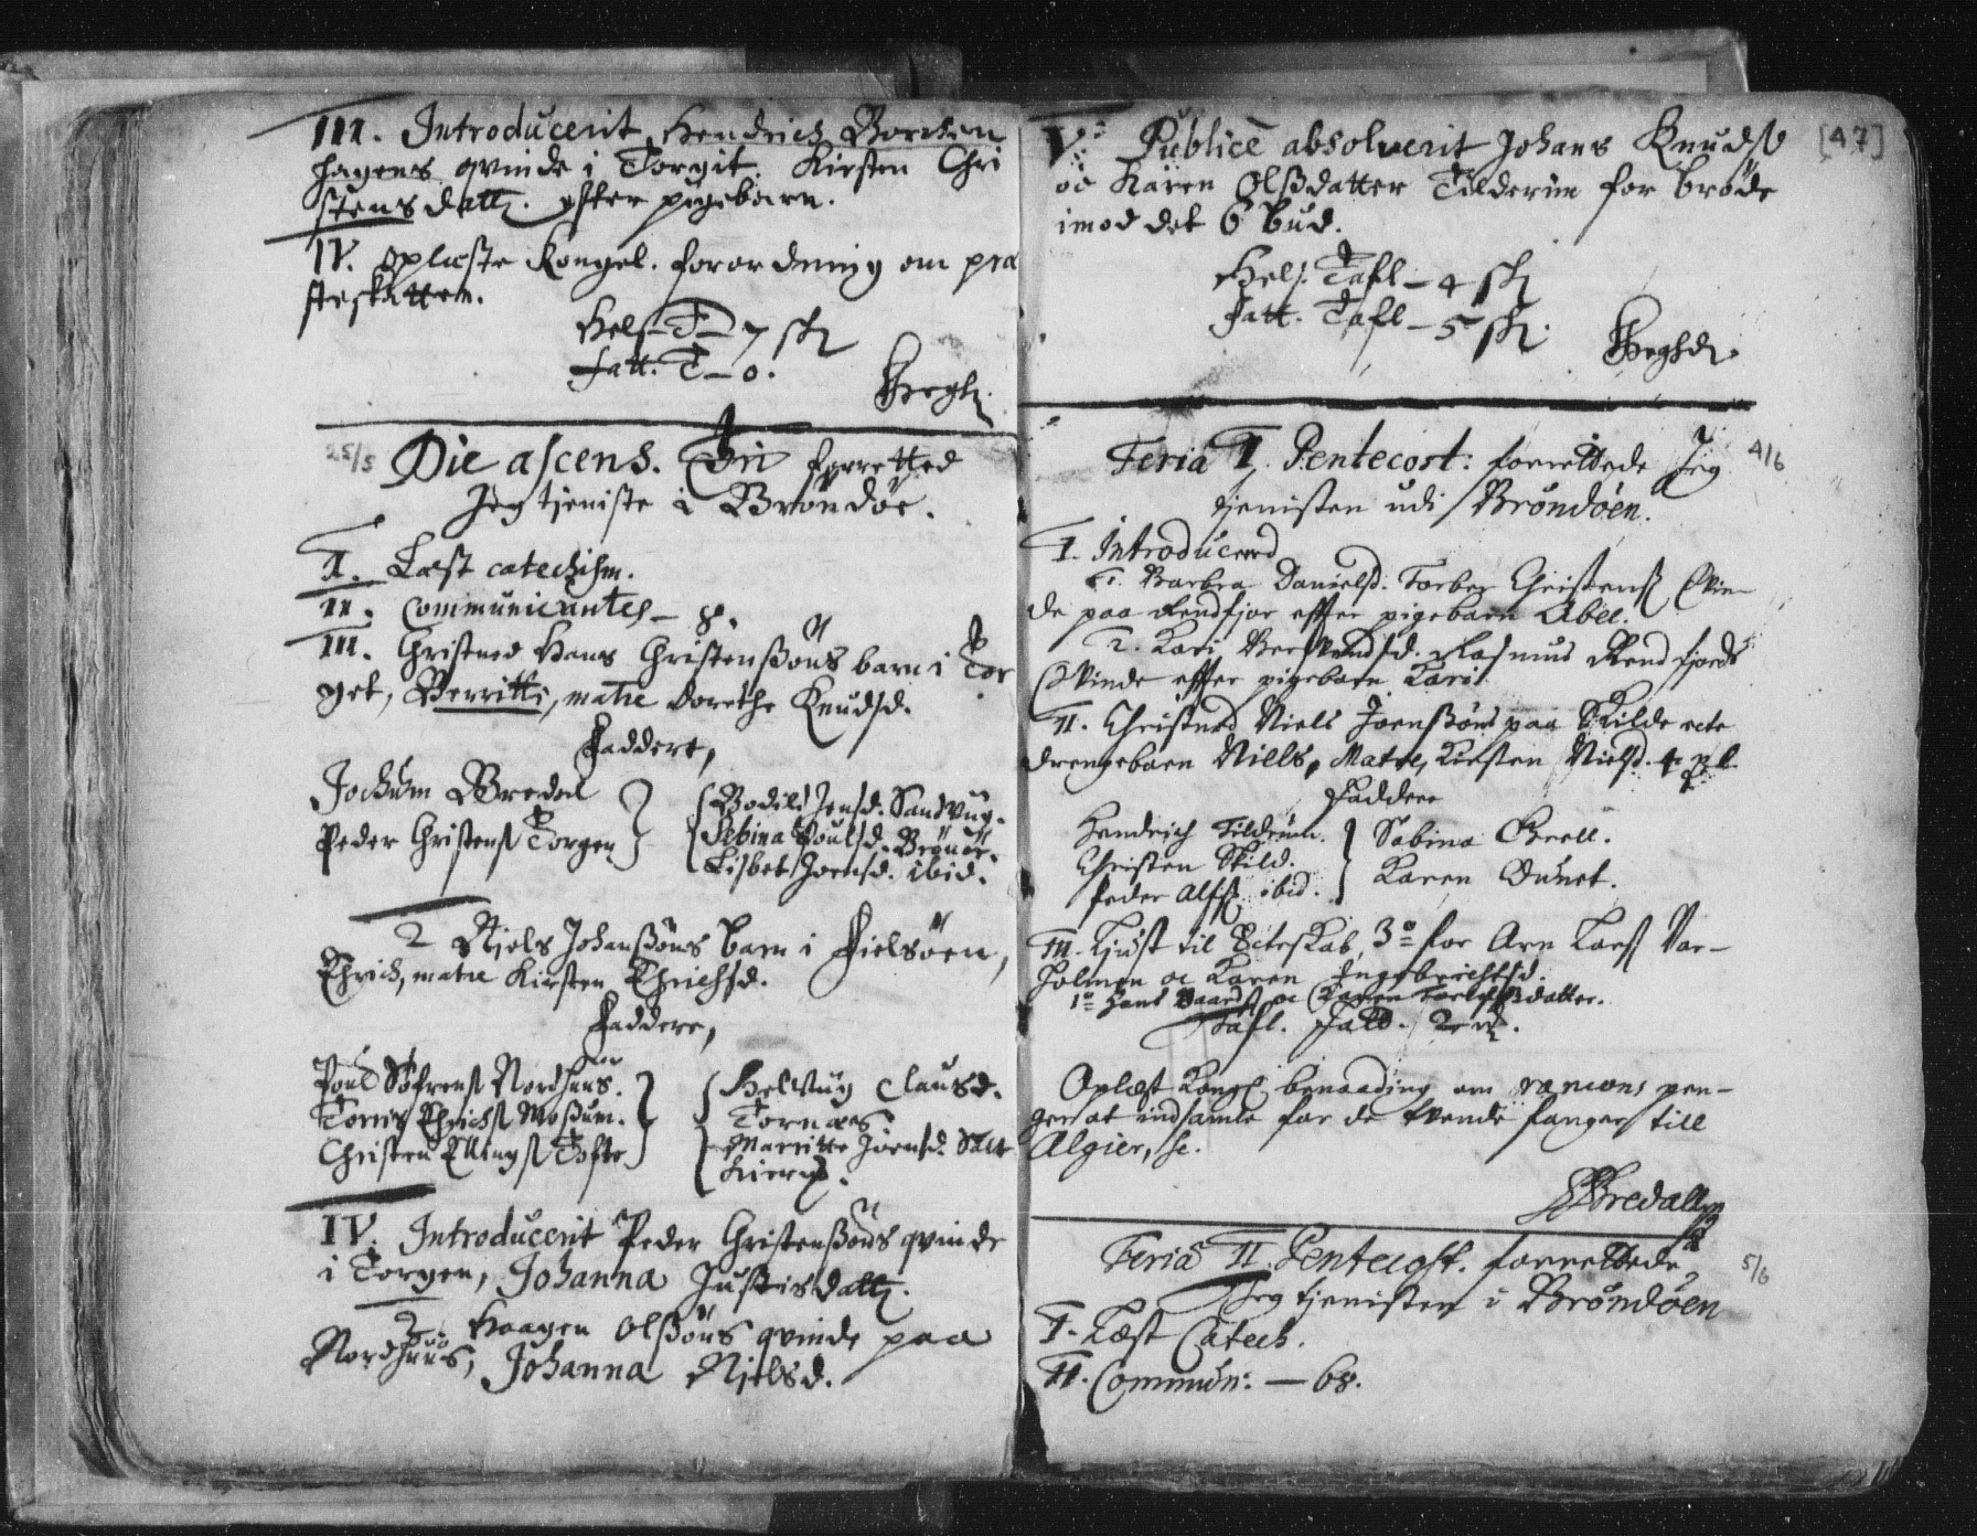 III. Introducerit Hendrich Borchen
hagens qvinde i Torgit. Kirsten Chri
stensdatt. efter pigebarn.
IV. Oplæste Kongel. forordning om præ
steskatten.
Hels T – 7 sk
Fatt. T – 0.
25/5
Die ascens. Dni forretted
Jeg tjeniste i Brøndøe.
I. Læst catechism.
II. Communicantes – 8.
III. Christned Hans Christenßøns barn i Tor
get, Berritte, matre Dorethe Knudsd.
Faddere,
Jochum Bredal
Peder Christens Torgen
Bodild Jensd. Sandvug.
Sebina Poulsd. Brønøe.
Lisbet Joensd. ibid.
2 Niels Johanßøns barn i Fielsøen,
Ehrich, matre Kirsten Ehrichsd.
Faddere,
Poul Søfrens Nordhuus.
Tonis Ehrichs Moßum.
Christen Ellings Tofte
Helvug Clausd.
Tornæs.
Marritte Joensd. Salt
kierg.
IV. Introducerit Peder Christenßøns qvinde
i Torgen, Johanna Justisdatt.
2 Haagen Olßøns qvinde paa
Nordhuus, Johanna Nielsd.
[47]
V. Publice absolverit Johans Knuds
oc Karen Olßdatter Tilderim for brøde
imod det 6 bud.
Hels. Tafl – 4 sk
Fatt. Tafl – 5 sk.
Feria I. Pentecost: forrettede Jeg
4/6
tjenisten udi Brøndøen.
I. Introducerd
1. Barbra Danielsd. Torber Christens Qvin-
de paa Rendfjor effter pigebarn Abel.
2. Kari Rasmus Rendfjords
Qvinde effter pigebarn Kari
II. Christned Niels Joenßøns paa Skilde ægte
drengebarn Nills, Matre, Kirsten Nielsd.
Faddere
Hendrich Tildrum.
Christen Skild.
Peder Alfs. ibid.
Sabina Grell.
Karen
III. Liust til Ecteskab 3º for Arn Lars Var-
holmen oc Karen Ingebrichtsd.
1º Hans Baards oc Karen
Tafl. Fatt. 2
Oplæst Kongl benaading om rancons pen-
ger at indsamle for de tvende fanger till
Algier, &c.
Bredall
Feria II. Pentecost. forrettede
5/6
Jeg tjenisten i Brøndøen
I. Læst Catech.
II. Commun: — 68.